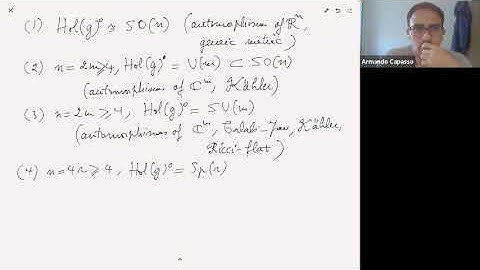 (1) Hol(g)⁰ ≅ SO(n) (automorphisms of ℝⁿ,
generic metric)
(2) n=2m≥4, Hol(g)⁰ = U(m) ⊂ SO(n)
(automorphisms of ℂᵐ, Kähler)
(3) n=2m≥4, Hol(g)⁰ = SU(m)
(automorphisms of ℂᵐ, Calabi-Yau, Kähler,
Ricci-flat)
(4) n=4r≥4, Hol(g)⁰ = Sp(r)
Armando Capasso